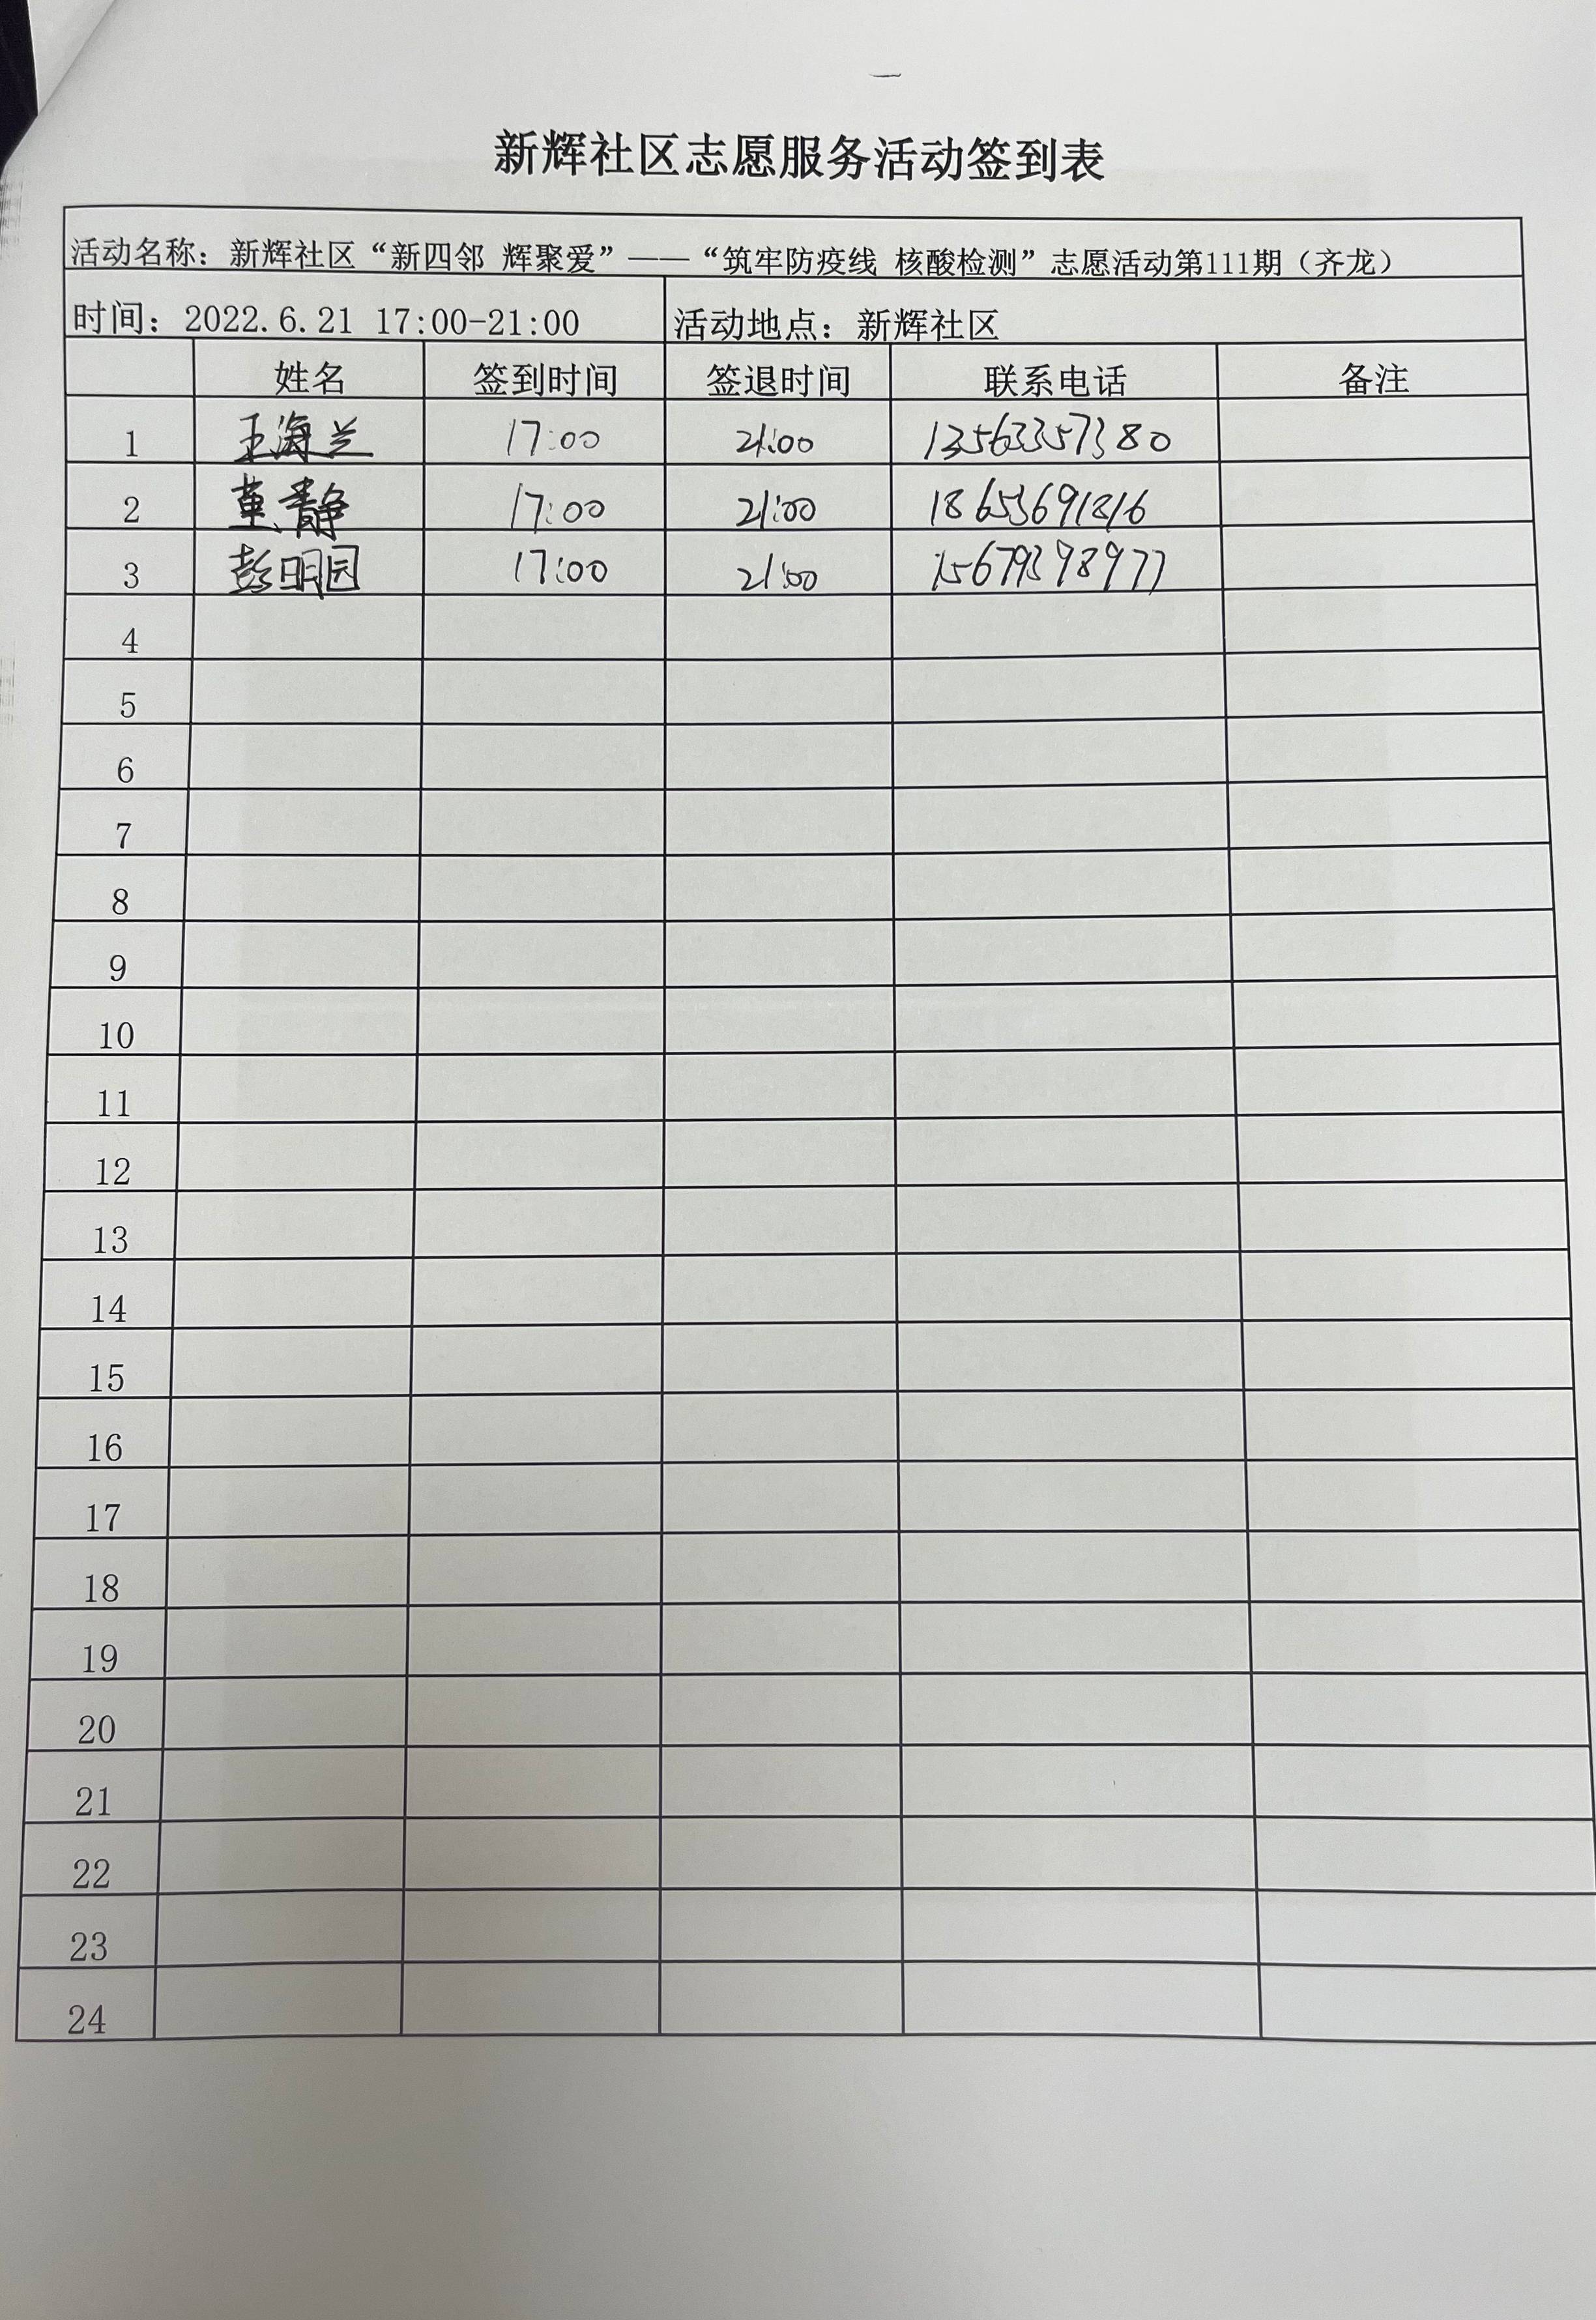 新辉社区志愿服务活动签到表
活动名称：新辉社区“新四邻 辉聚爱”——“筑牢防疫线 核酸检测”志愿活动第111期（齐龙）
时间：2022.6.21 17:00-21:00 活动地点：新辉社区
姓名 签到时间 签退时间 联系电话 备注
1 王海兰 17:00 21:00 13563357380
2 董静 17:00 21:00 18653691816
3 彭明园 17:00 21:00 15679398977
4
5
6
7
8
9
10
11
12
13
14
15
16
17
18
19
20
21
22
23
24